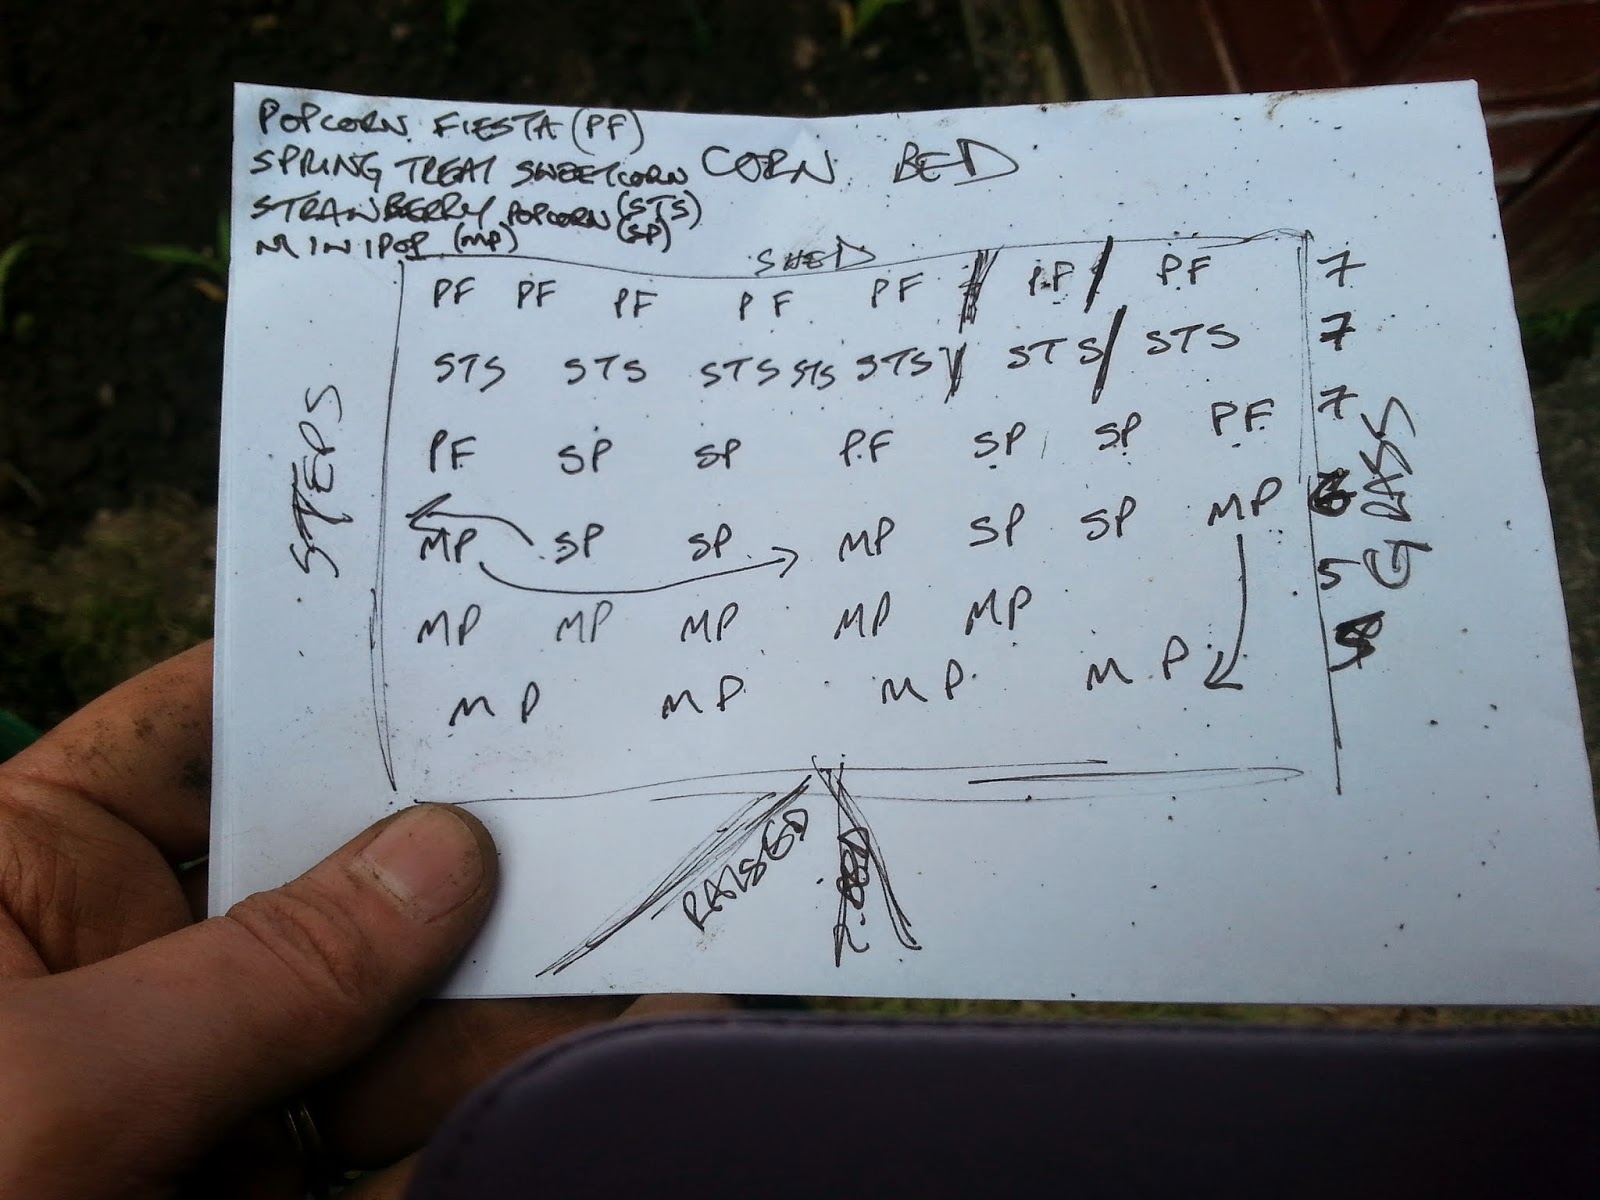 POPCORN FIESTA (PF)
SPRING TREAT SWEETCORN (STS)
STRAWBERRY POPCORN (SP)
MINIPOP (MP)
CORN BED
SHED
PF PF PF PF PF PF PF 7
STS STS STS STS STS STS STS 7
PF SP SP PF SP SP PF 7
MP SP SP MP SP SP MP
MP MP MP MP MP 5
MP MP MP MP
STEPS
GRASS
RAISED